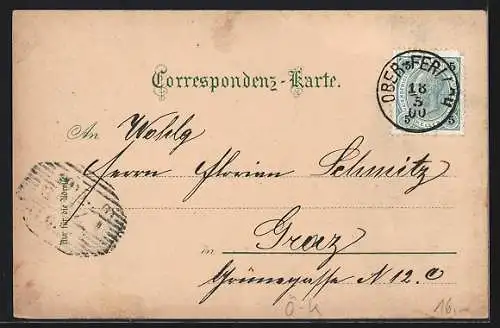 Correspondenz-Karte.
OBER-FERLACH
18
5
00
5 5
An Wohlg
Herrn Florian Schmitz
Nur für die Adresse
in Graz
Grünegasse N 12. C
Ö-K
16.-